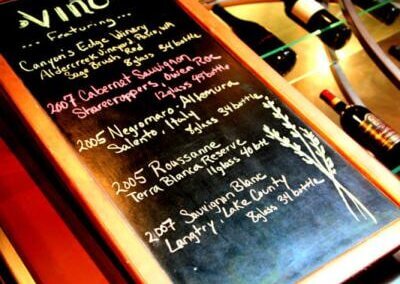 Vino
... Featuring ...
Canyon's Edge Winery
Aldercreek Vineyard Paso, WA
Sage Brush Red
8glass 34 bottle
2007 Cabernet Sauvignon
Sharecroppers, Owen Roe
12glass 45 bottle
2005 Negromaro,
Salento, Italy
8glass 34 bottle
2005 Roussanne
Terra Blanca Reserve
11glass 40 btl
2007 Sauvignon Blanc
Langtry, Lake County
8glass 34 bottle